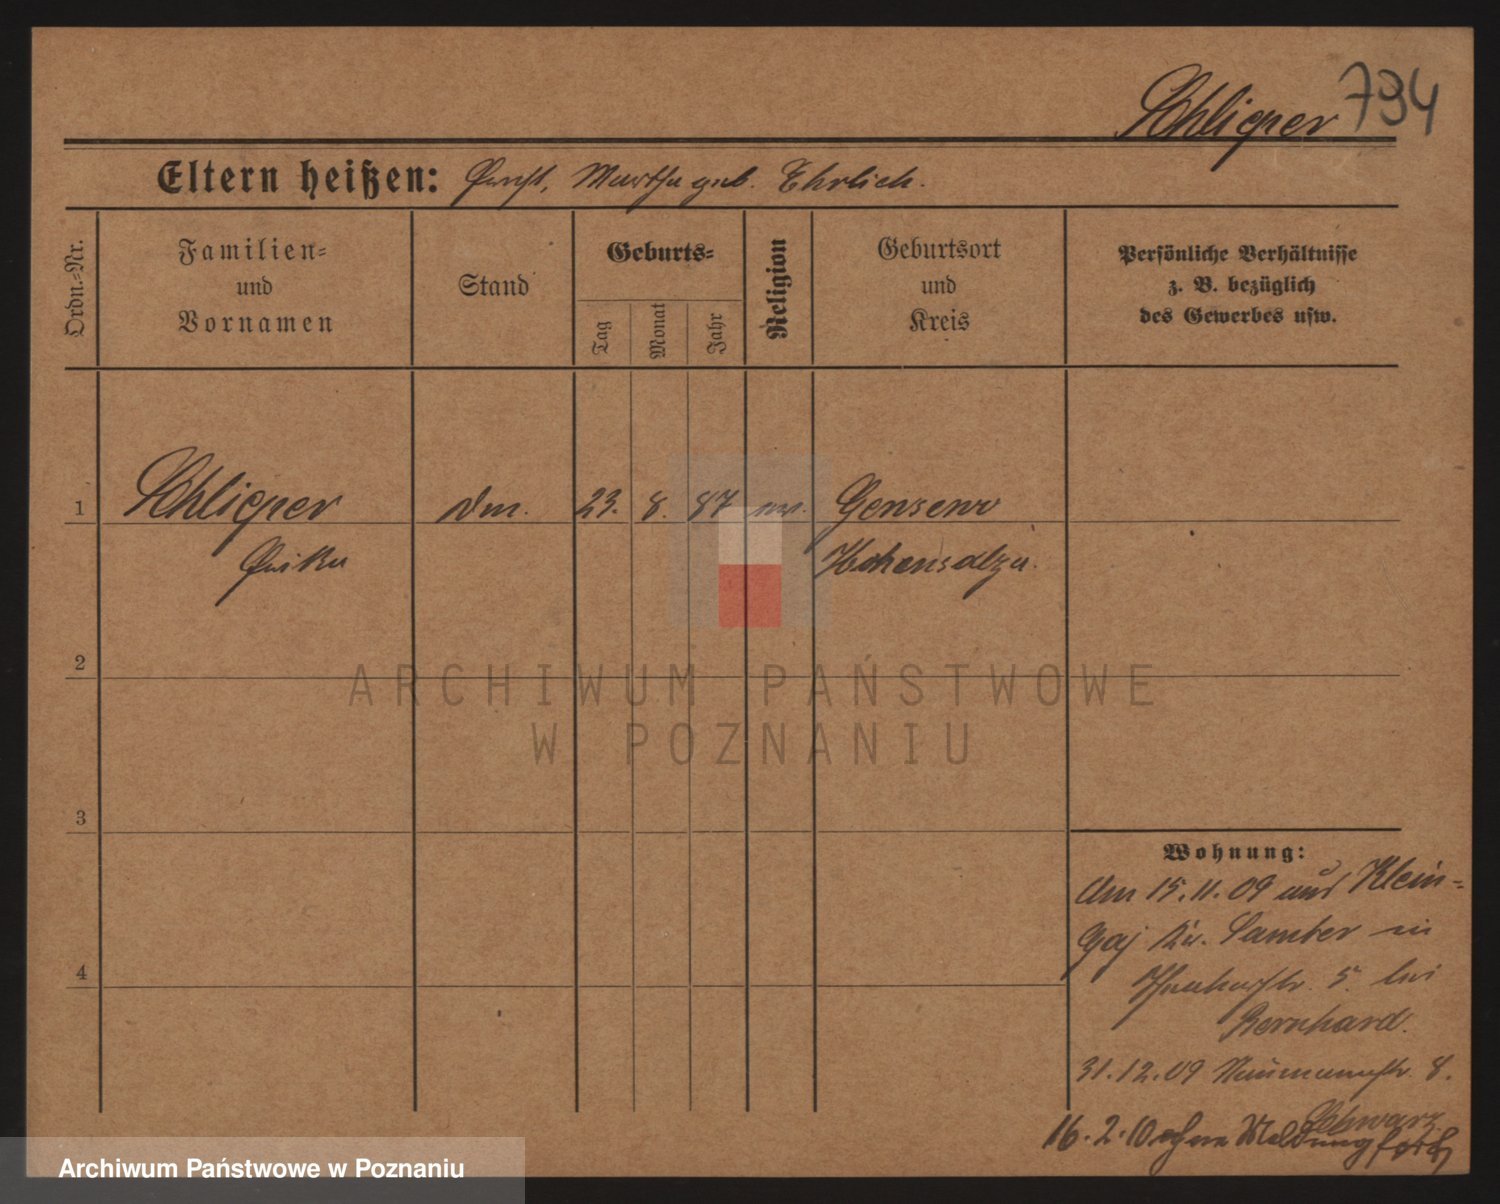 Schlieper 794
Eltern heißen: Ernst, Martha geb. Ehrlich.
Ordn.=Nr.
Familien=
und
Vornamen
Stand
Geburts=
Tag
Monat
Jahr
Religion
Geburtsort
und
Kreis
Persönliche Verhältnisse
z. B. bezüglich
des Gewerbes usw.
1 Schlieper 23. 8. 87 Gensewo
Erika Hohensalza.
2
3
4
Wohnung:
Am 15.11.09 aus Klein=
Gaj Kr. Samter in
5. bei
Bernhard.
31.12.09 Naumannstr. 8.
Schwarz
16.2.10 ohne Meldung fort
ARCHIWUM PAŃSTWOWE
W POZNANIU
Archiwum Państwowe w Poznaniu